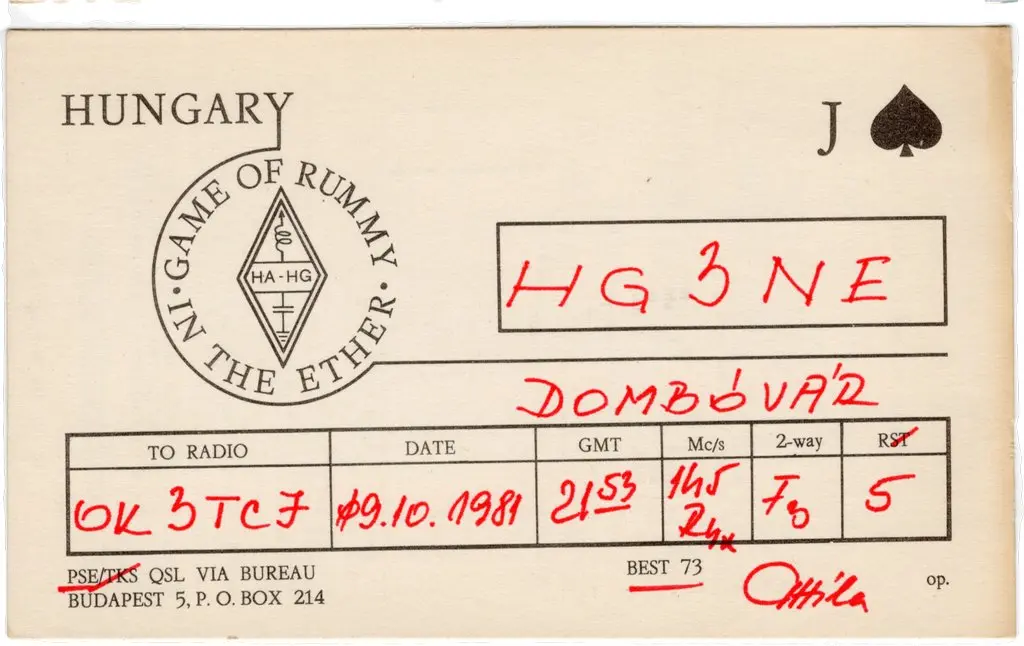 HUNGARY
J ♠
GAME OF RUMMY
· IN THE ETHER ·
HA-HG
HG3NE
DOMBÓVÁR
TO RADIO DATE GMT Mc/s 2-way RST
OK3TCJ 09.10.1981 21 53 145 F3 5
PSE/TKS QSL VIA BUREAU
BEST 73
BUDAPEST 5, P. O. BOX 214
Attila op.